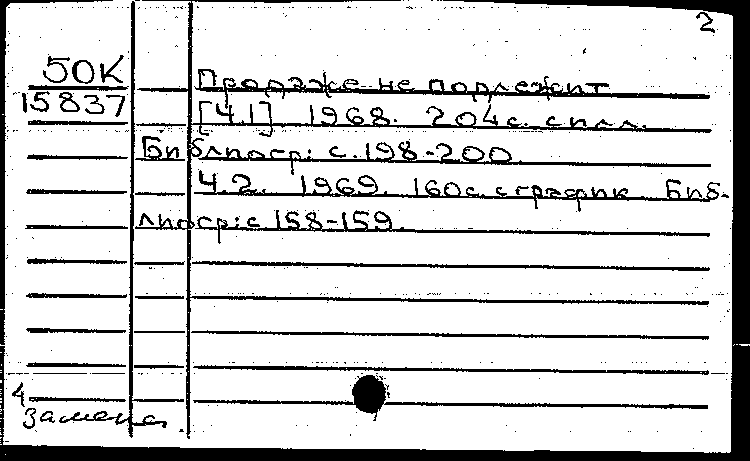 2
50К
15837
Продаже не подлежит
[Ч.1] 1968. 204с. с илл.
Библиогр: с.198-200.
Ч.2. 1969. 160с. с график Биб-
лиогр: с 158-159.
4
замена.